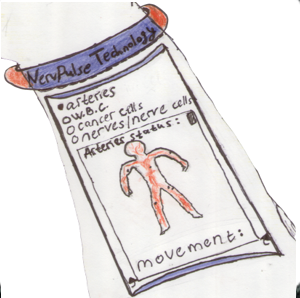 NervPulse Technology
•arteries
o W.B.C.
o cancer cells
o nerves/nerve cells
Arteries status:
movement: